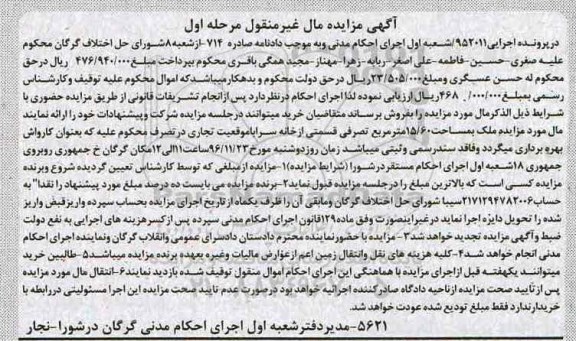 آگهی مزایده مال غیرمنقول مرحله اول
درپرونده اجرایی۹۵۲۰۱۱/شعبه اول اجرای احکام مدنی وبه موجب دادنامه صادره ۷۱۴-ازشعبه۸شورای حل اختلاف گرگان محکوم
علیه صغری-حسین-فاطمه-علی اصغر-ربابه-زهرا-مهناز-مجید همگی باقری محکوم بپرداخت مبلغ۴۷۶/۹۴۰/۰۰۰ ریال درحق
محکوم له حسن عسگری ومبلغ۲۳/۵۰۵/۰۰۰ریال درحق دولت محکوم و بدهکارمیباشدکه اموال محکوم علیه توقیف وکارشناس
رسمی بمبلغ۴۶۸/۰۰۰/۰۰۰ریال ارزیابی نموده لذا اجرای احکام درنظردارد پس ازانجام تشریفات قانونی از طریق مزایده حضوری با
شرایط ذیل الذکرمال مورد مزایده را بفروش برساند متقاضیان خرید میتوانند درجلسه مزایده شرکت وپیشنهادات خود را ارائه نمایند
مال مورد مزایده ملک بمساحت۱۵/۶۰مترمربع تصرفی قسمتی ازخانه سراباموقعیت تجاری درتصرف محکوم علیه که بعنوان کارواش
بهره برداری میگردد وفاقد سندرسمی وثبتی میباشد زمان روزدوشنبه مورخ۹۶/۱۱/۲۳ساعت۱۱الی۱۲مکان گرگان خ جمهوری روبروی
جمهوری ۱۸شعبه اول اجرای احکام مستقردرشورا(شرایط مزایده)۱-مزایده ازمبلغی که توسط کارشناس تعیین گردیده شروع وبرنده
مزایده کسی است که بالاترین مبلغ را درجلسه مزایده قبول نماید۲-برنده مزایده می بایست ده درصد مبلغ مورد پیشنهاد را نقدا" به
حساب۲۱۷۱۲۹۴۷۸۲۰۰۶سیبا شورای حل اختلاف گرگان ومابقی آن را ظرف یکماه ازتاریخ اجرای مزایده بحساب سپرده واریزفیض واریز
شده را تحویل دایره اجرا نماید درغیراینصورت وفق ماده۱۲۹قانون اجرای احکام مدنی سپرده پس ازکسرهزینه های اجرایی به نفع دولت
ضبط وآگهی مزایده تجدید خواهد شد۳-مزایده با حضورنماینده محترم دادستان دادسرای عمومی وانقلاب گرگان ونماینده اجرای احکام
مدنی انجام خواهد شد۴-کلیه هزینه های نقل وانتقال زمین اعم ازعوارض مالیات وغیره بعهده برنده مزایده میباشد۵-طالبین خرید
میتوانند یکهفته قبل ازاجرای مزایده با هماهنگی این اجرای احکام اموال منقول توقیف شده بازدید نمایند۶-انتقال مال مورد مزایده
پس ازتأیید صحت مزایده ازناحیه دادگاه صادرکننده اجرائیه خواهد بود درصورت عدم تایید صحت مزایده این اجرا مسئولیتی دررابطه با
خریدارندارد فقط مبلغ تودیع شده عودت خواهد شد.
۵۶۲۱-مدیردفترشعبه اول اجرای احکام مدنی گرگان درشورا-نجار